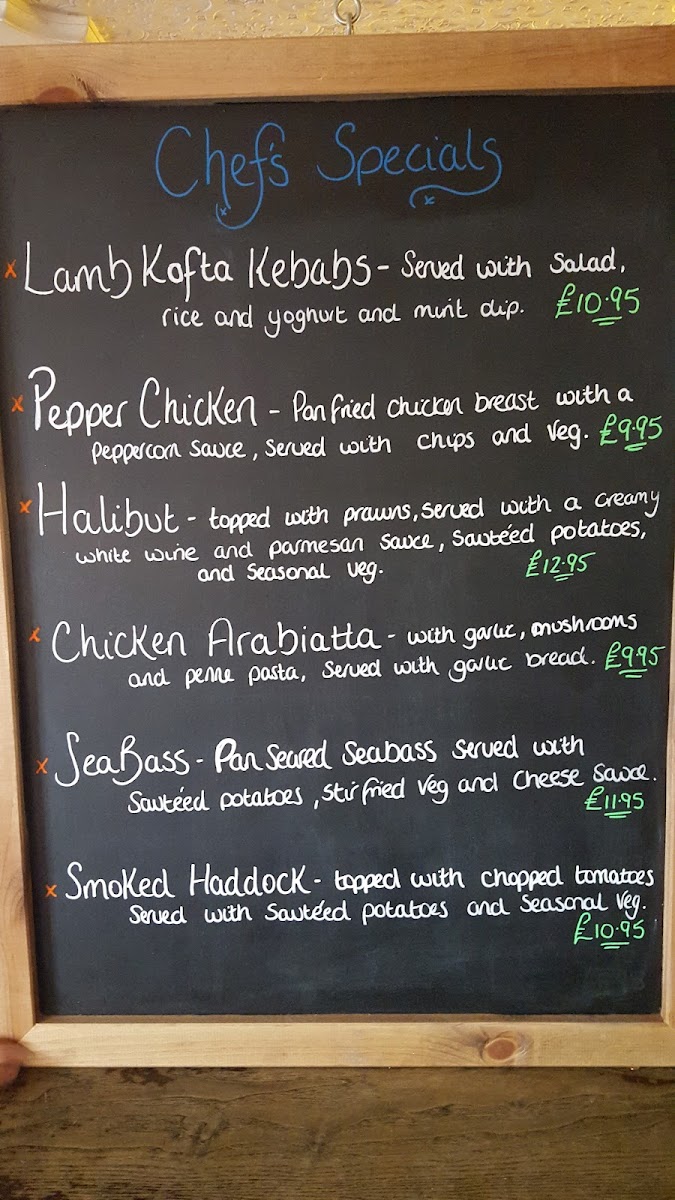 Chef's Specials
x Lamb Kofta Kebabs - Served with Salad,
rice and yoghurt and mint dip. £10.95
x Pepper Chicken - Pan fried chicken breast with a
peppercorn sauce, served with chips and veg. £9.95
x Halibut - topped with prawns, served with a creamy
white wine and parmesan sauce, Sautéed potatoes,
and seasonal veg. £12.95
x Chicken Arabiatta - with garlic, mushrooms
and penne pasta, Served with garlic bread. £9.95
x SeaBass - Pan Seared Seabass served with
Sautéed potatoes, stir fried veg and Cheese Sauce.
£11.95
x Smoked Haddock - topped with chopped tomatoes
Served with Sautéed potatoes and seasonal veg.
£10.95